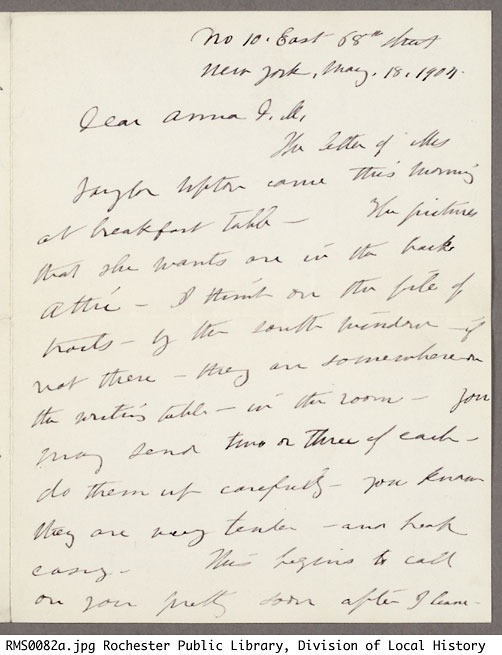 No 10. East 68th street
New York, May. 18, 1904.
Dear Anna D. M,
The letter of Mrs
Taylor Upton came this morning
at breakfast table — The pictures
that she wants are in the back
Attic — I think on the pile of
tracts — by the south window — if
not there — they are somewhere on
the writing table — in the room — you
may send two or three of each —
do them up carefully — you know
they are very tender — and break
easy — This begins to call
on you pretty soon after I leave —
RMS0082a.jpg Rochester Public Library, Division of Local History